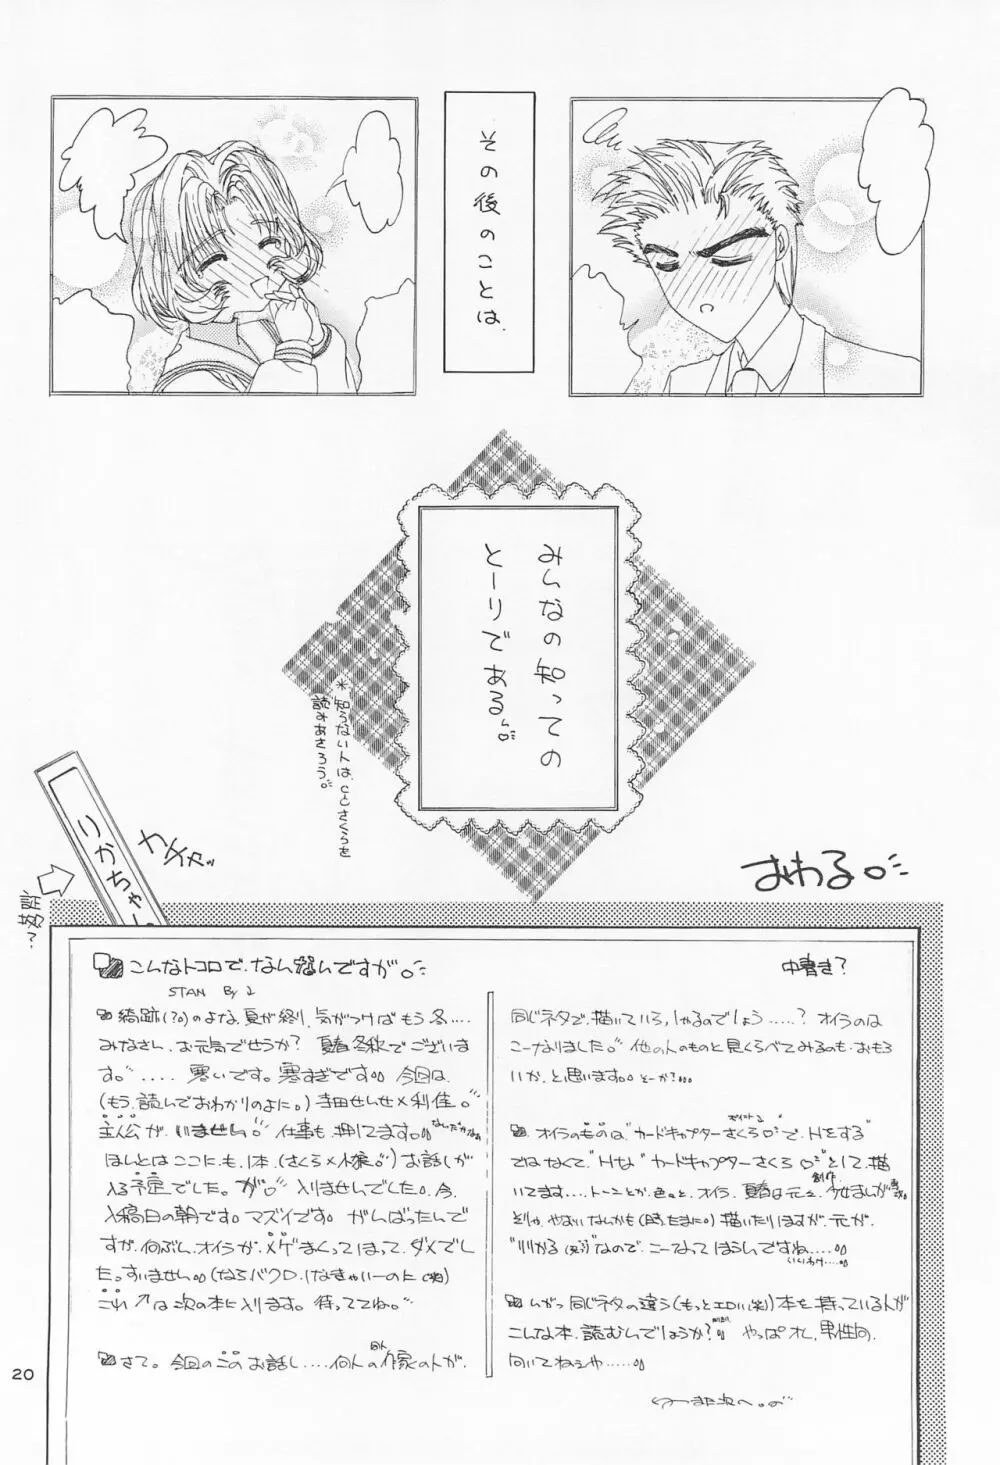 その後のことは、
みんなの知っての
とーりである。
*知らない人は、CCさくらを
読みあさろう。
りかちゃー
カチャッ
おわる。
こんなトコロで、なんなんですが。
STAN By 2
中書き?
のよな、夏が終り、気がつけばもう冬....
みなさん、お元気でせうか? 夏春冬秋でございま
す。..... 寒いです。寒すぎです。今回は、
(もう、読んでおわかりのよに。) 寺田せんせ×利佳。
主人公が、いません。仕事も、押してます。
ほんとはここに、も、1本、(さくら×小狼。) お話しが
入る予定でした。が。入りませんでした。今、
入稿日の朝です。マズイです。がんばったんで
すが、何ぶん、オイラが、メゲまくってはって、ダメでし
た。すいません。
これ↗は次の本に入ります。待っててね。
さて。今回のこのお話し....何人の作家の人が、
同じネタで、描いていらっしゃるのでしょう.....? オイラのは
こーなりました。他の人のものと見くらべてみるのも、おもろ
いか、と思います。とーか?...
オイラのものは、"カードキャプターさくら"で、Hをする"
ではなくて、"Hな"カードキャプターさくら"として、描
いてます....トーンとか、色々と、オイラ、夏春は元々、
描いたりしますが、元が、
なので、こーなってしまうんですね....
いいわけ....
同じネタの違う(もっとエロい(笑))本を持っている人が
こんな本、読むんでしょうか? やっぱオレ、男性向、
向いてねぇや.....
また次へ。
20